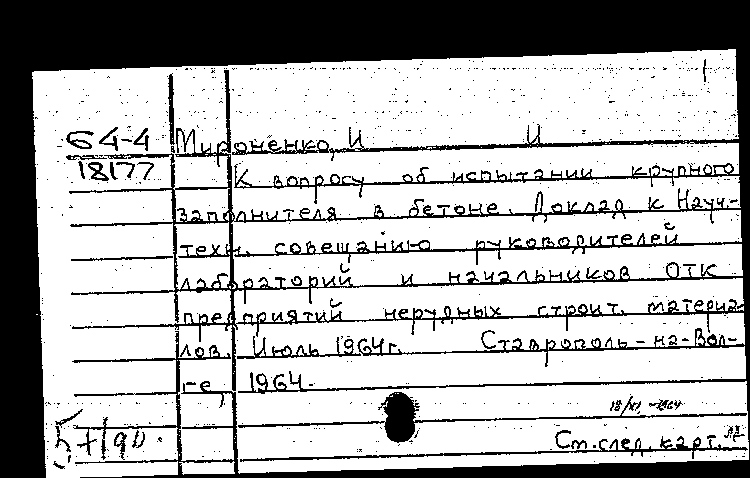 64-4 Мироненко, И И
18177 К вопросу об испытании крупного
заполнителя в бетоне. Доклад к Науч-
техн. совещанию руководителей
лабораторий и начальников ОТК
предприятий нерудных строит. материа-
лов. Июль 1964г. Ставрополь-на-Вол-
ге, 1964.
18/XI -1964
См. след. карт.